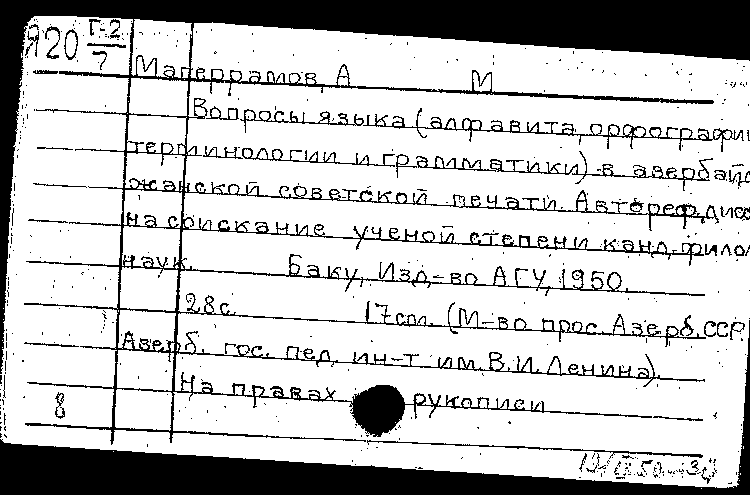 Я20 Г-2
7
Магеррамов, А М
Вопросы языка (алфавита, орфографии
терминологии и грамматики) в азербайд
жанской советской печати. Автореф. дисс
на соискание ученой степени канд. филол
наук. Баку, Изд-во АГУ, 1950.
28 с. 17 см. (М-во прос. Азерб. ССР.
Азерб. гос. пед. ин-т им. В. И. Ленина).
На правах рукописи
8